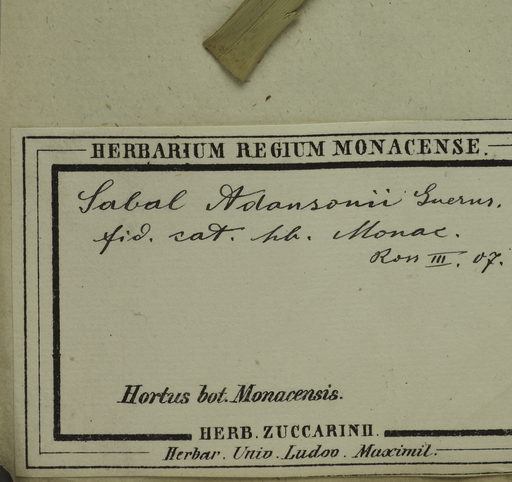 HERBARIUM REGIUM MONACENSE.
Sabal Adansonii Guerns.
fid. cat. hb. Monac.
Ross III. 07.
Hortus bot. Monacensis.
HERB. ZUCCARINII.
Herbar. Univ. Ludov. Maximil.